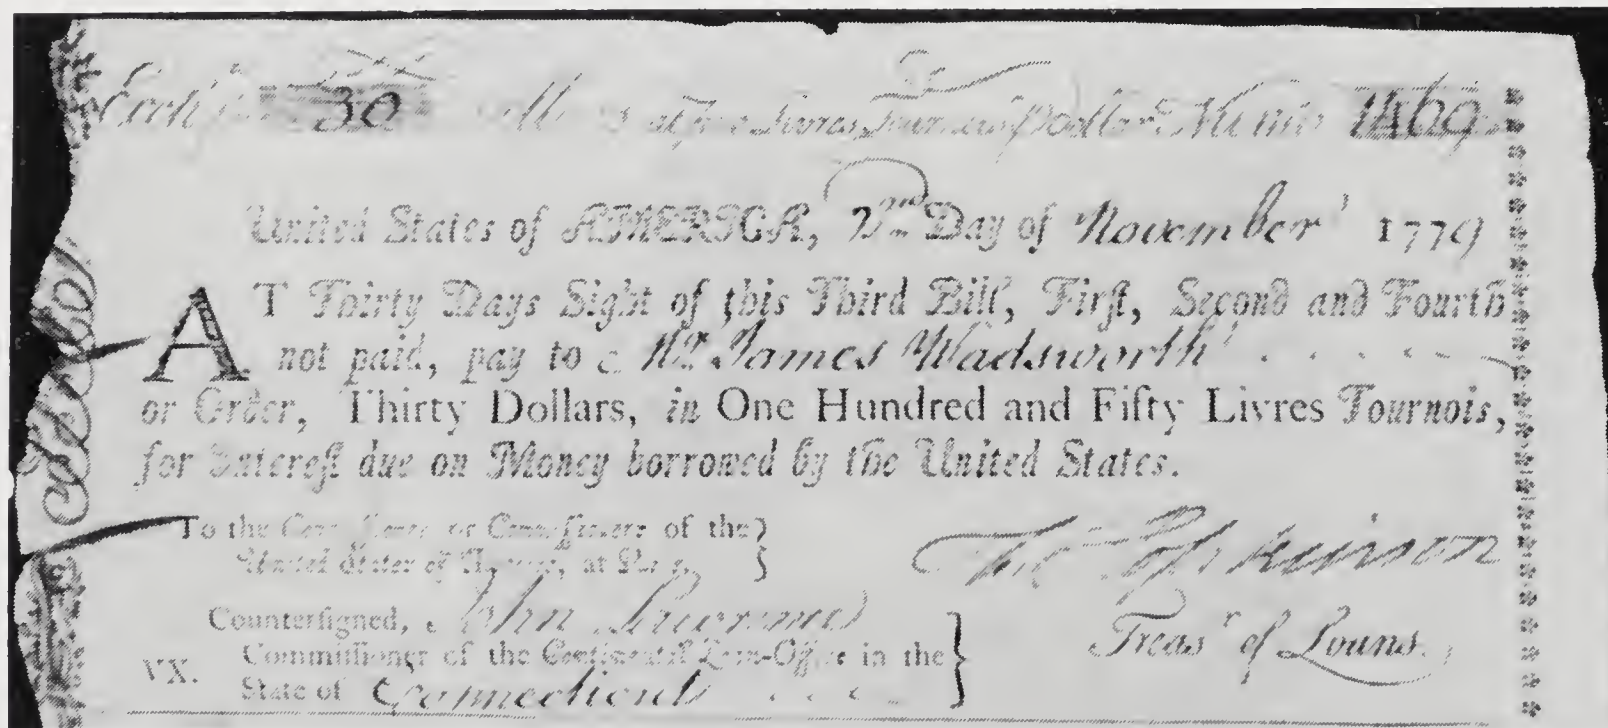 Exch 30 at five Livres Tournois p Dollar Numr 1469
United States of AMERICA, Day of November 1779
AT Thirty Days Sight of this Third Bill, First, Second and Fourth
not paid, pay to Mr. James Wadsworth
or Order, Thirty Dollars, in One Hundred and Fifty Livres Tournois,
for Interest due on Money borrowed by the United States.
To the Commissioner or Commissioners of the
United States of America, at Paris,
Hopkinson
Countersigned, John Lawrence
Treasr of Loans.
Commissioner of the Continental Loan-Office in the
VX. State of Connecticut